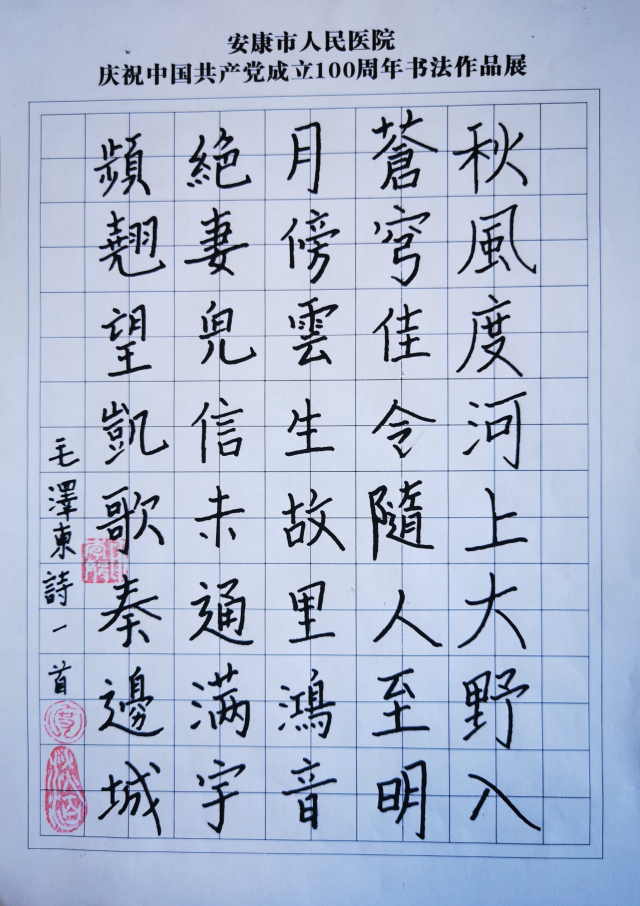 安康市人民医院
庆祝中国共产党成立100周年书法作品展
秋風度河上大野入
蒼穹佳令隨人至明
月傍雲生故里鴻音
絶妻兒信未通满宇
頻翹望凱歌奏邊城
毛澤東詩一首